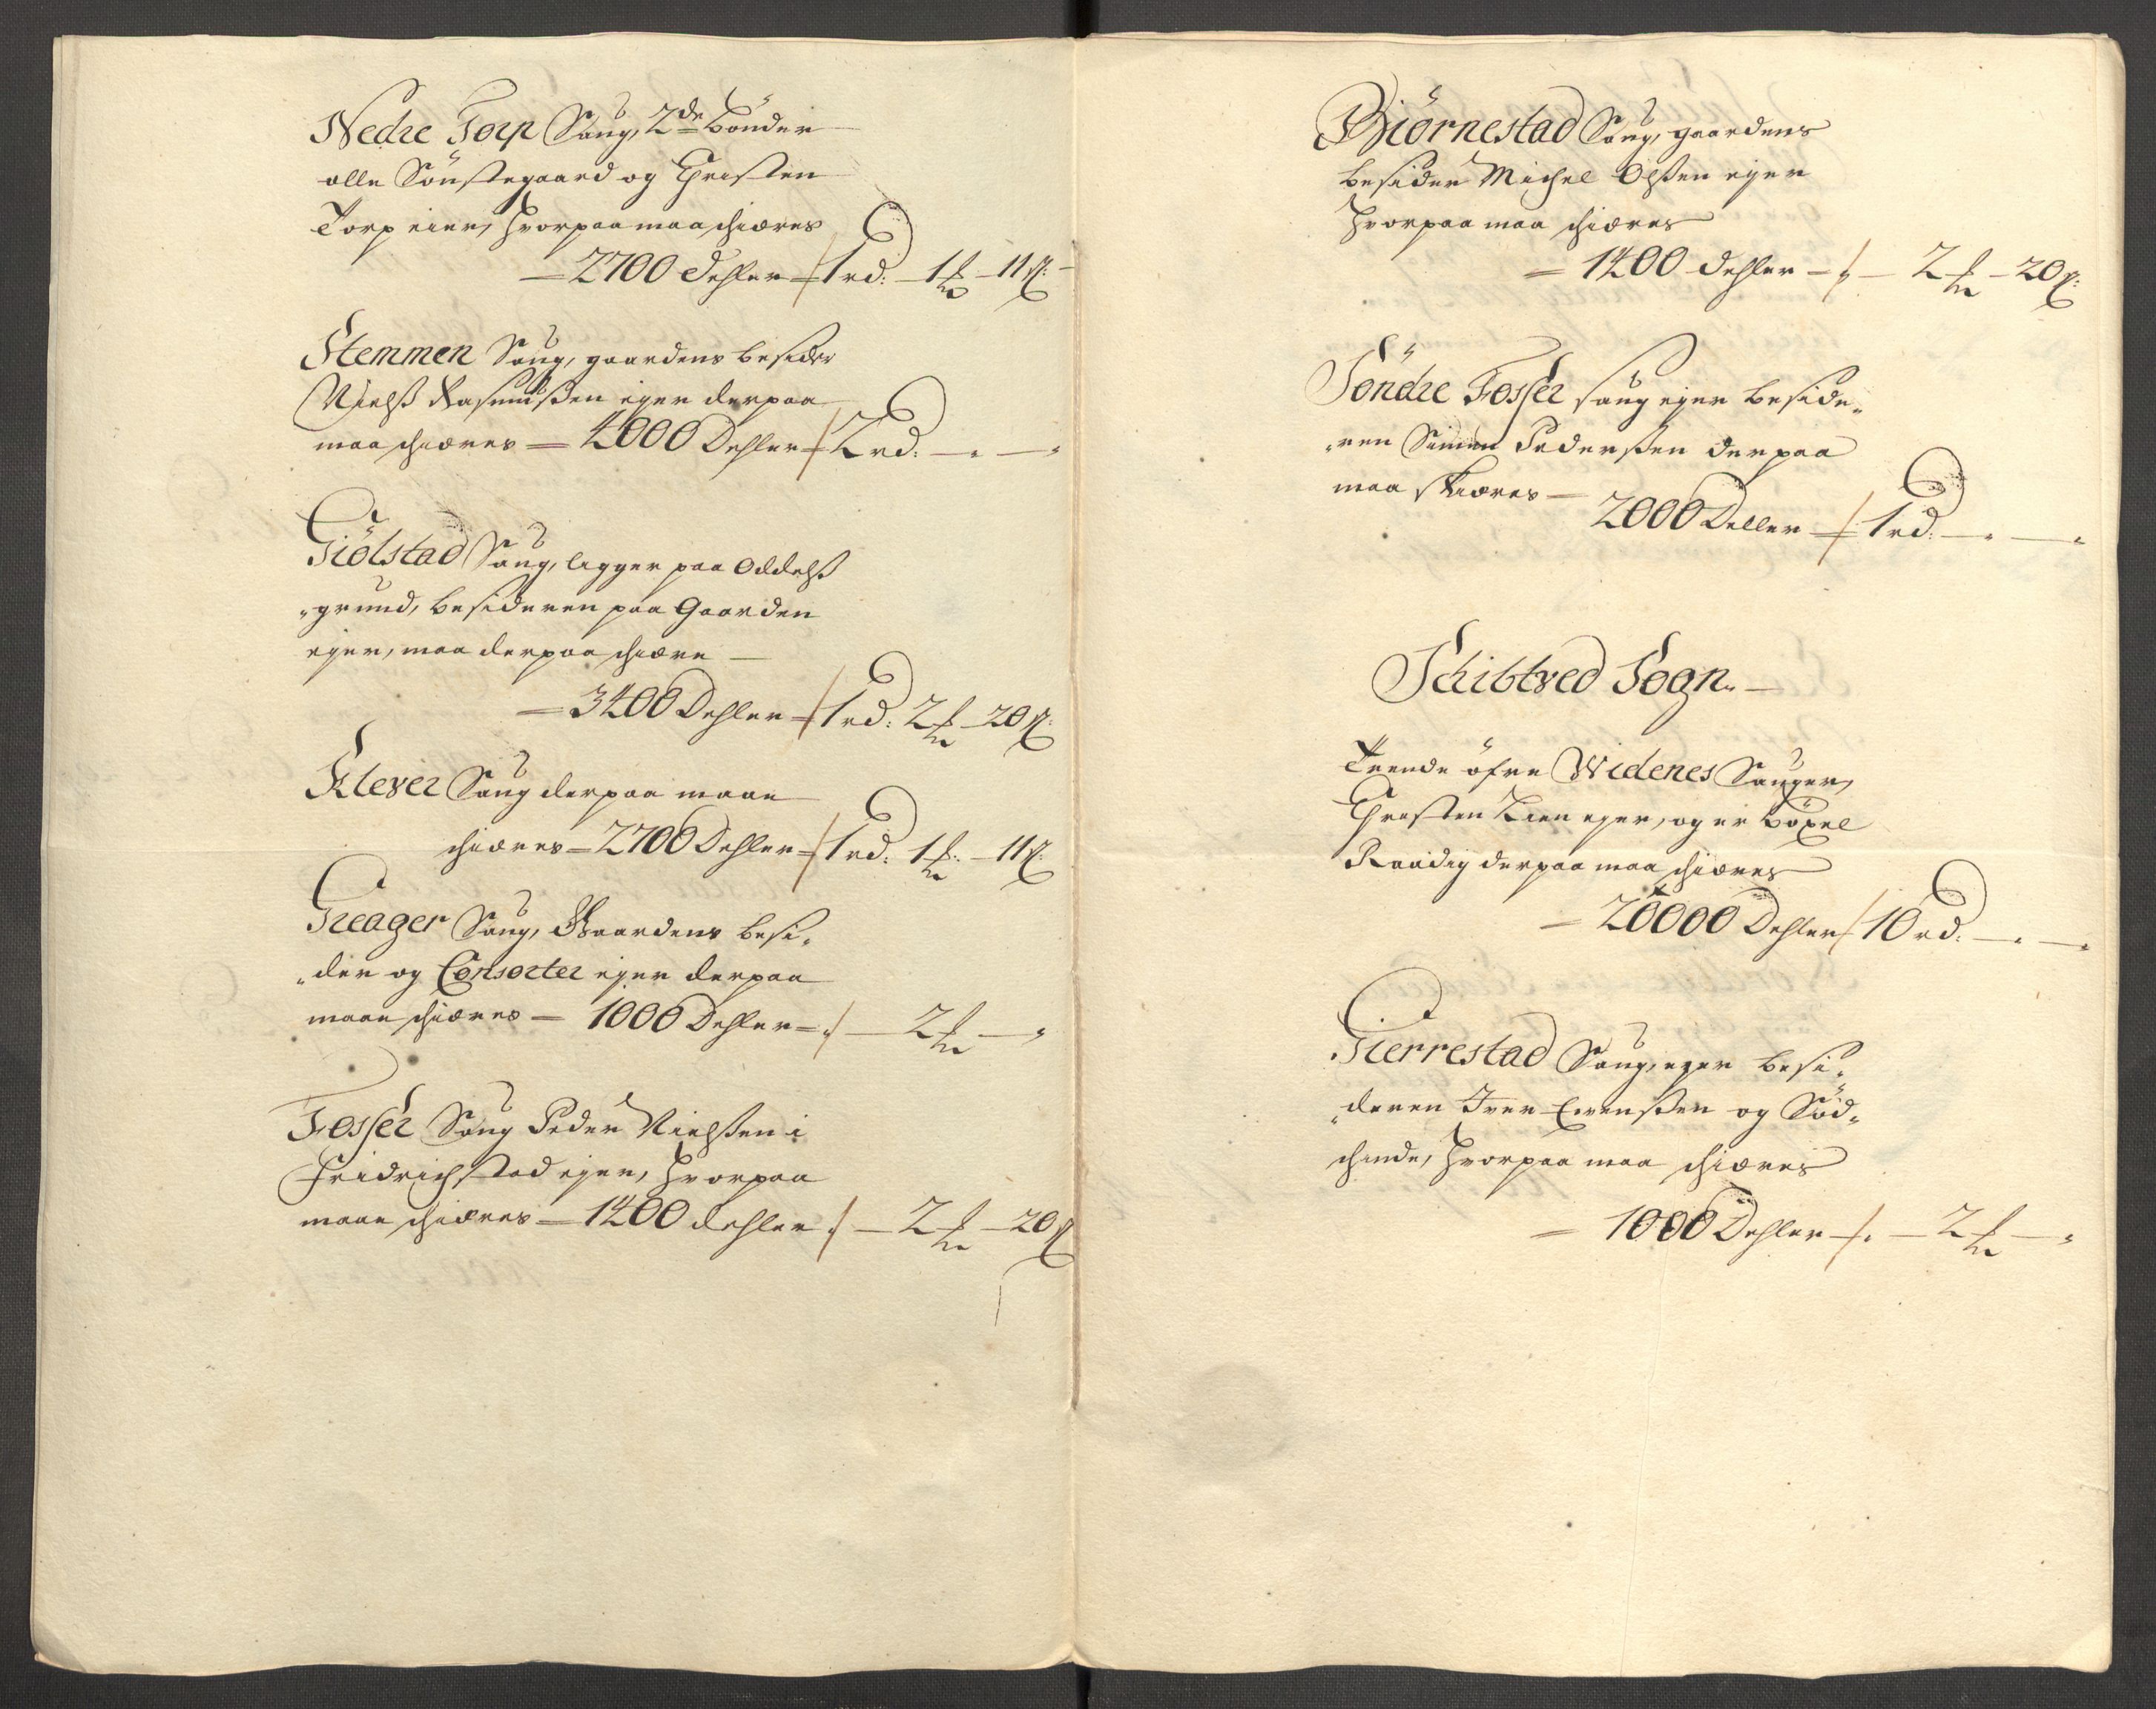 Nedre Torp Saug, 2de bönder
olle Sönstegaard og Christen
Torp eier, hvorpaa maa schiæres
= 2700 Dehler = 1 rd: - 1 ₰ - 11 ß: -
Stemmen Saug, gaardens besider
Nielß Rasmußen eyer derpaa
maa schiæres = 4000 Dehler = 2 rd. - " - "
Giölstad Saug, ligger paa Oddelß
"grund, besideren paa Gaarden
eyer, maa derpaa schiære -
= 3400 Dehler = 1 rd: 2 ₰ - 20 ß:
Klever Saug derpaa maae
schiæres = 2700 Dehler = 1 rd: 1 ₰: - 11 ß:
Greager Saug, Gaardens besi-
"der og Consorter eyer derpaa
maae schiæres - 1000 Dehler = " - 2 ₰ - "
Fosser Saug Peder Nielßen i
Fridrichstad eyer, hvorpaa
maae schiæres = 1400 dehler " - 2 ₰ - 20 ß
Biörnestad Saug, gaardens
besider Michel Olßen eyer
hvorpaa maa schiæres
= 1400 dehler - " - 2 ₰ - 20 ß:
Söndre Fosser saug eyer beside-
"ren Simen Pederßen derpaa
maa skiæres -
2000 Deller = 1 rd: - " - "
Schibtved Sogn. -
Trende öfre Widenes Sauger,
Christen Lien eyer, og er böxel
Raadig derpaa maa schiæres
= 20000 Dehler 10 rd. - " - "
Gierrestad Saug, eyer besi-
"deren Iver Evenßen og Söd-
schinde, hvorpaa maa schiæres
= 1000 Dehler - " - 2 ₰ - "